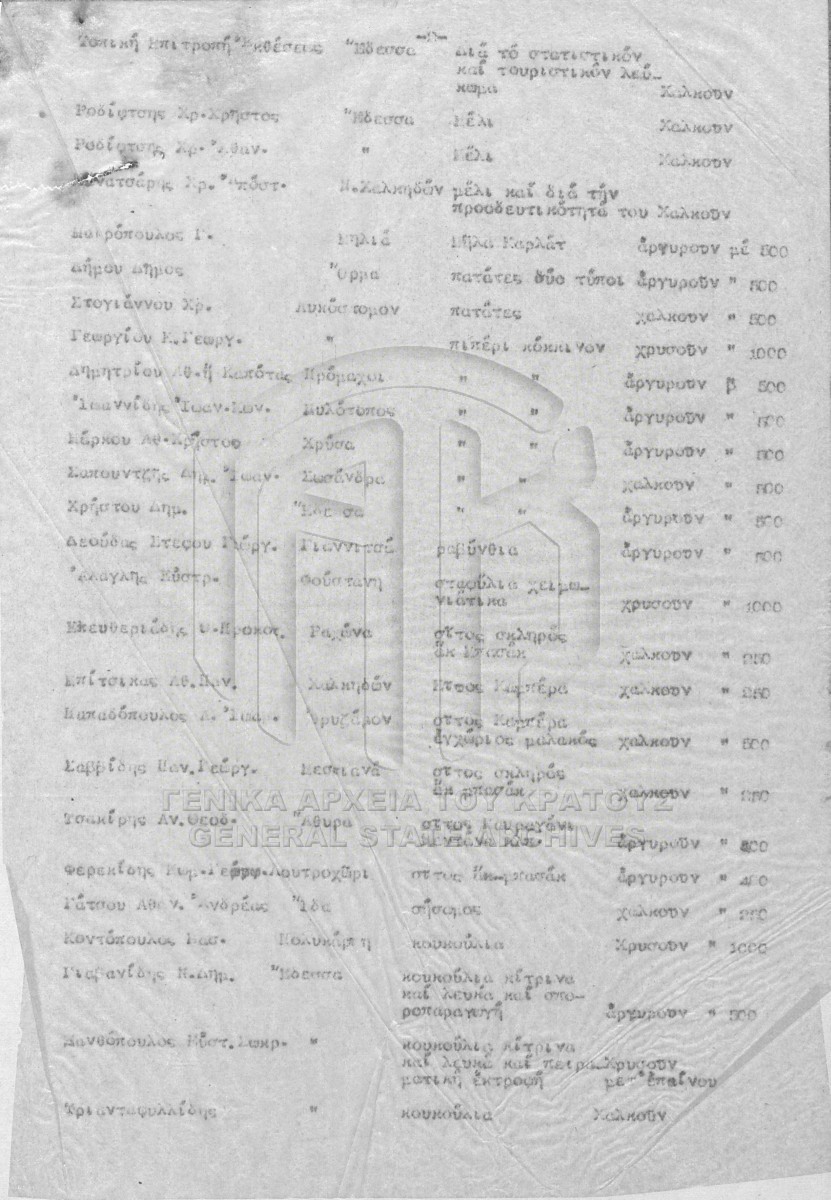 -2-
Τοπική Επιτροπή Ἐκθέσεως Ἔδεσσα Διά τό στατιστικόν
καί τουριστικόν λεύ-
κωμα Χαλκοῦν
Ροδίφτσης Χρ. Χρῆστος Ἔδεσσα Μέλι Χαλκοῦν
Ροδίφτσης Χρ. Ἀθαν. " Μέλι Χαλκοῦν
Χρ. Ἀπόστ. Ν. Χαλκηδών μέλι καί διά τήν
προοδευτικότητά του Χαλκοῦν
Μακρόπουλος Γ. Μηλιά Μῆλα Σκαρλάτ ἀργυροῦν μέ 500
Δήμου Δῆμος Ὄρμα πατάτες δύο τύποι ἀργυροῦν " 500
Στογιάννου Χρ. Λυκόστομον πατάτες χαλκοῦν " 500
Γεωργίου Κ. Γεωργ. " πιπέρι κόκκινον χρυσοῦν " 1000
Δημητρίου Αθ. ἤ Καπότας Πρόμαχοι " " ἀργυροῦν β 500
Ἰωαννίδης Ἰωαν. Κων. Μυλότοπος " " ἀργυροῦν " 500
Μάρκου Αθ. Χρῆστος Χρύσα " " ἀργυροῦν " 500
Σαπουντζῆς Δημ. Ἰωαν. Σωσάνδρα " " χαλκοῦν " 500
Χρήστου Δημ. Ἔδεσσα " " ἀργυροῦν " 500
Δεούδας Στεφου Γεώργ. Γιαννιτσά ραβύνθια ἀργυροῦν " 500
Εὐστρ. Φούστανη σταφύλια χειμω-
νιάτικα χρυσοῦν " 1000
Ελευθεριάδης Ραχώνα σῖτος σκληρός
ἄκ Μπασάκ χαλκοῦν " 250
Επίτσικας Αθ. Παν. Χαλκηδών Σῖτος Καμπέρα χαλκοῦν " 250
Παπαδόπουλος Α. Ἰωαν. Δρυζάμον σῖτος Καμπέρα
ἐγχώριος μαλακός χαλκοῦν " 500
Σαββίδης Παν. Γεώργ. Μεσιανά σῖτος σκληρός
ἄκ μπασάκ χαλκοῦν " 250
ΓΕΝΙΚΑ ΑΡΧΕΙΑ ΤΟΥ ΚΡΑΤΟΥΣ
Τσακίρης Αν. Θεοδ. Ἄθυρα σῖτος
GENERAL STATE ARCHIVES
ἀργυροῦν "
Φερεκίδης Κωμ. Γεώργ. Λουτροχώρι σῖτος ἄκ-μπασάκ ἀργυροῦν " 400
Γάτσου Αθαν. Ἀνδρέας Ἴδα σήσαμος χαλκοῦν " 250
Κοντόπουλος Βασ. Πολυκάρπη κουκούλια Χρυσοῦν " 1000
Γιαβανίδης Ν. Δημ. Ἔδεσσα κουκούλια κίτρινα
καί λευκά καί σπο-
ροπαραγωγή ἀργυροῦν " 500
Ξανθόπουλος Εὐστ. Σωκρ. " κουκούλια κίτρινα
καί λευκά καί πειρα- Χρυσοῦν
ματική ἐκτροφή μετ' ἐπαίνου
Τριανταφυλλίδης " κουκούλια Χαλκοῦν